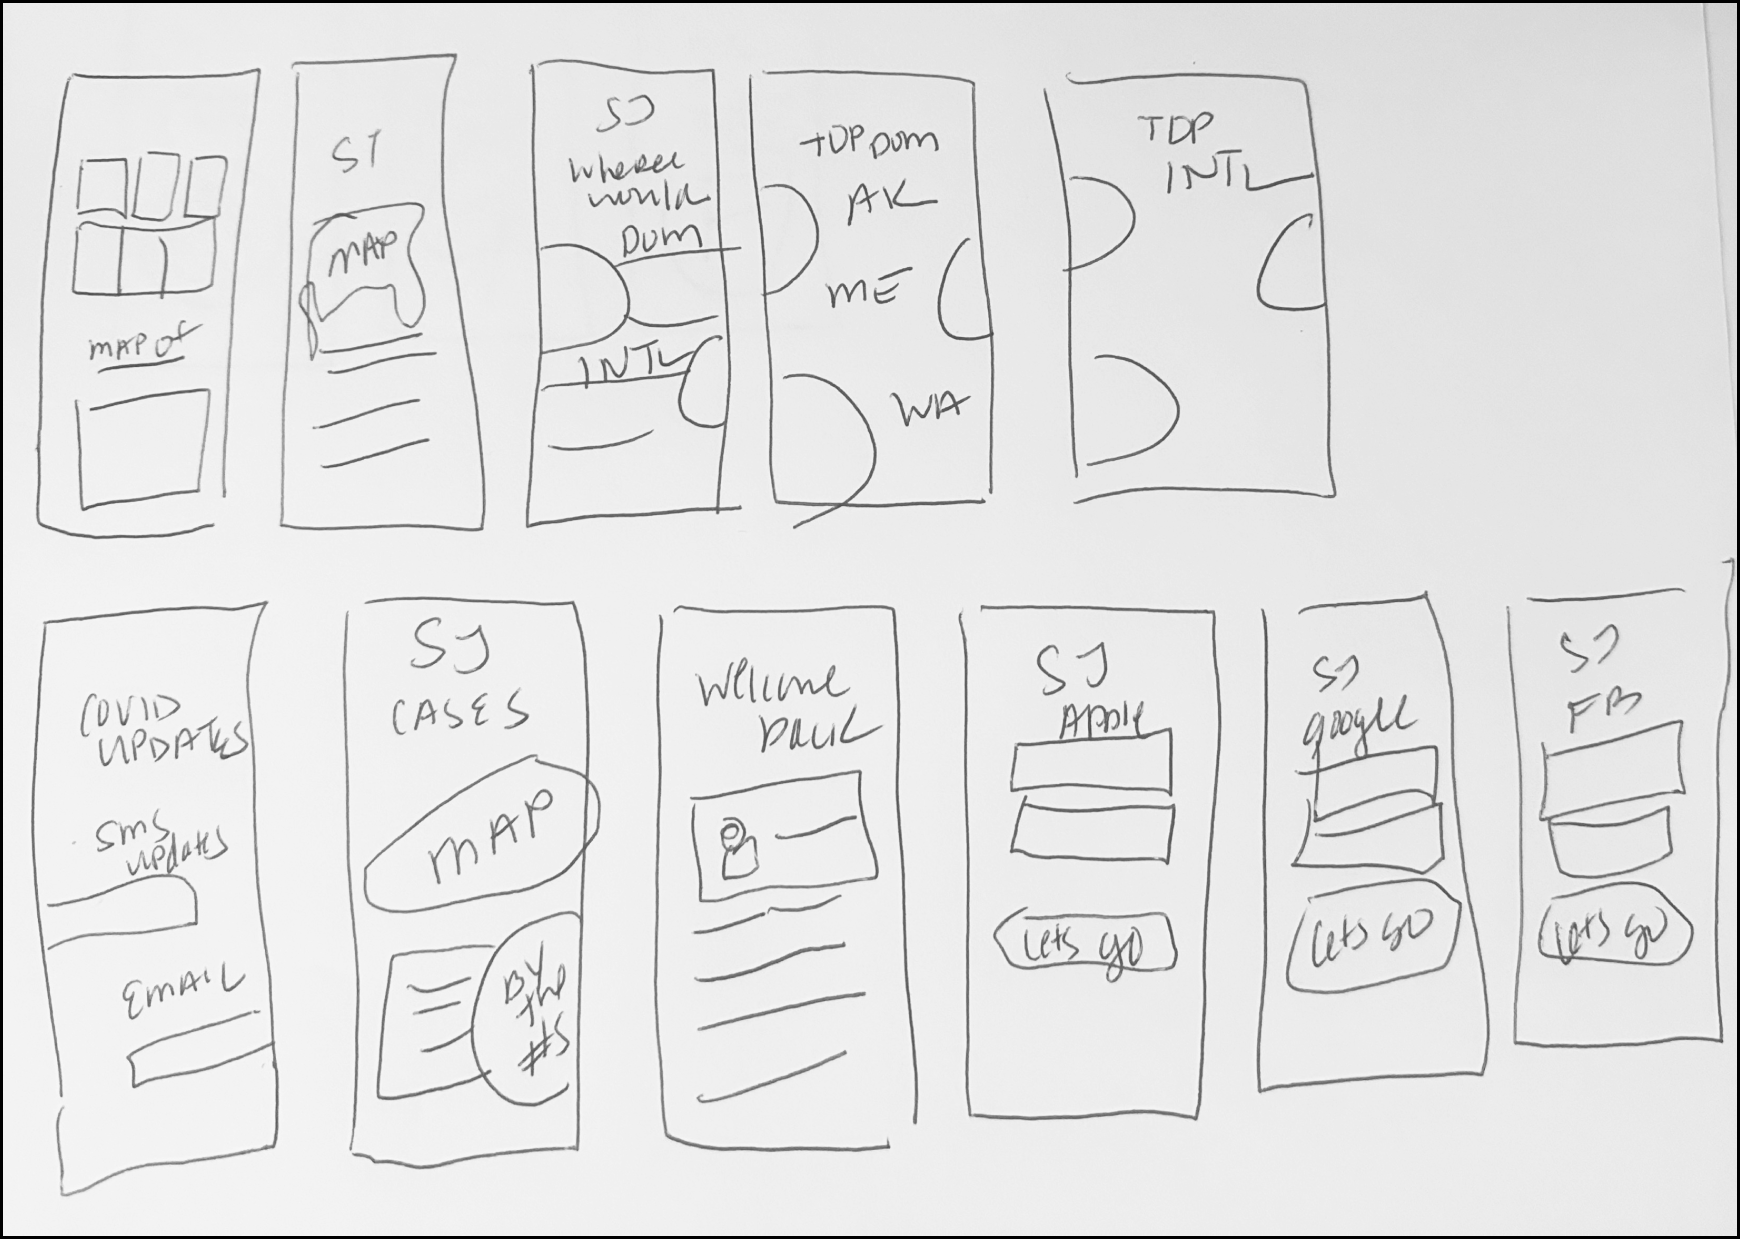 MAP OF
SJ
MAP
SJ
Wheree
would
DOM
INTL
TOP DOM
AK
ME
WA
TOP
INTL
COVID
UPDATES
SMS
updates
EMAIL
SJ
CASES
MAP
BY
the
#S
Welcome
back
SJ
Apple
Lets go
SJ
google
Lets go
SJ
FB
Lets go